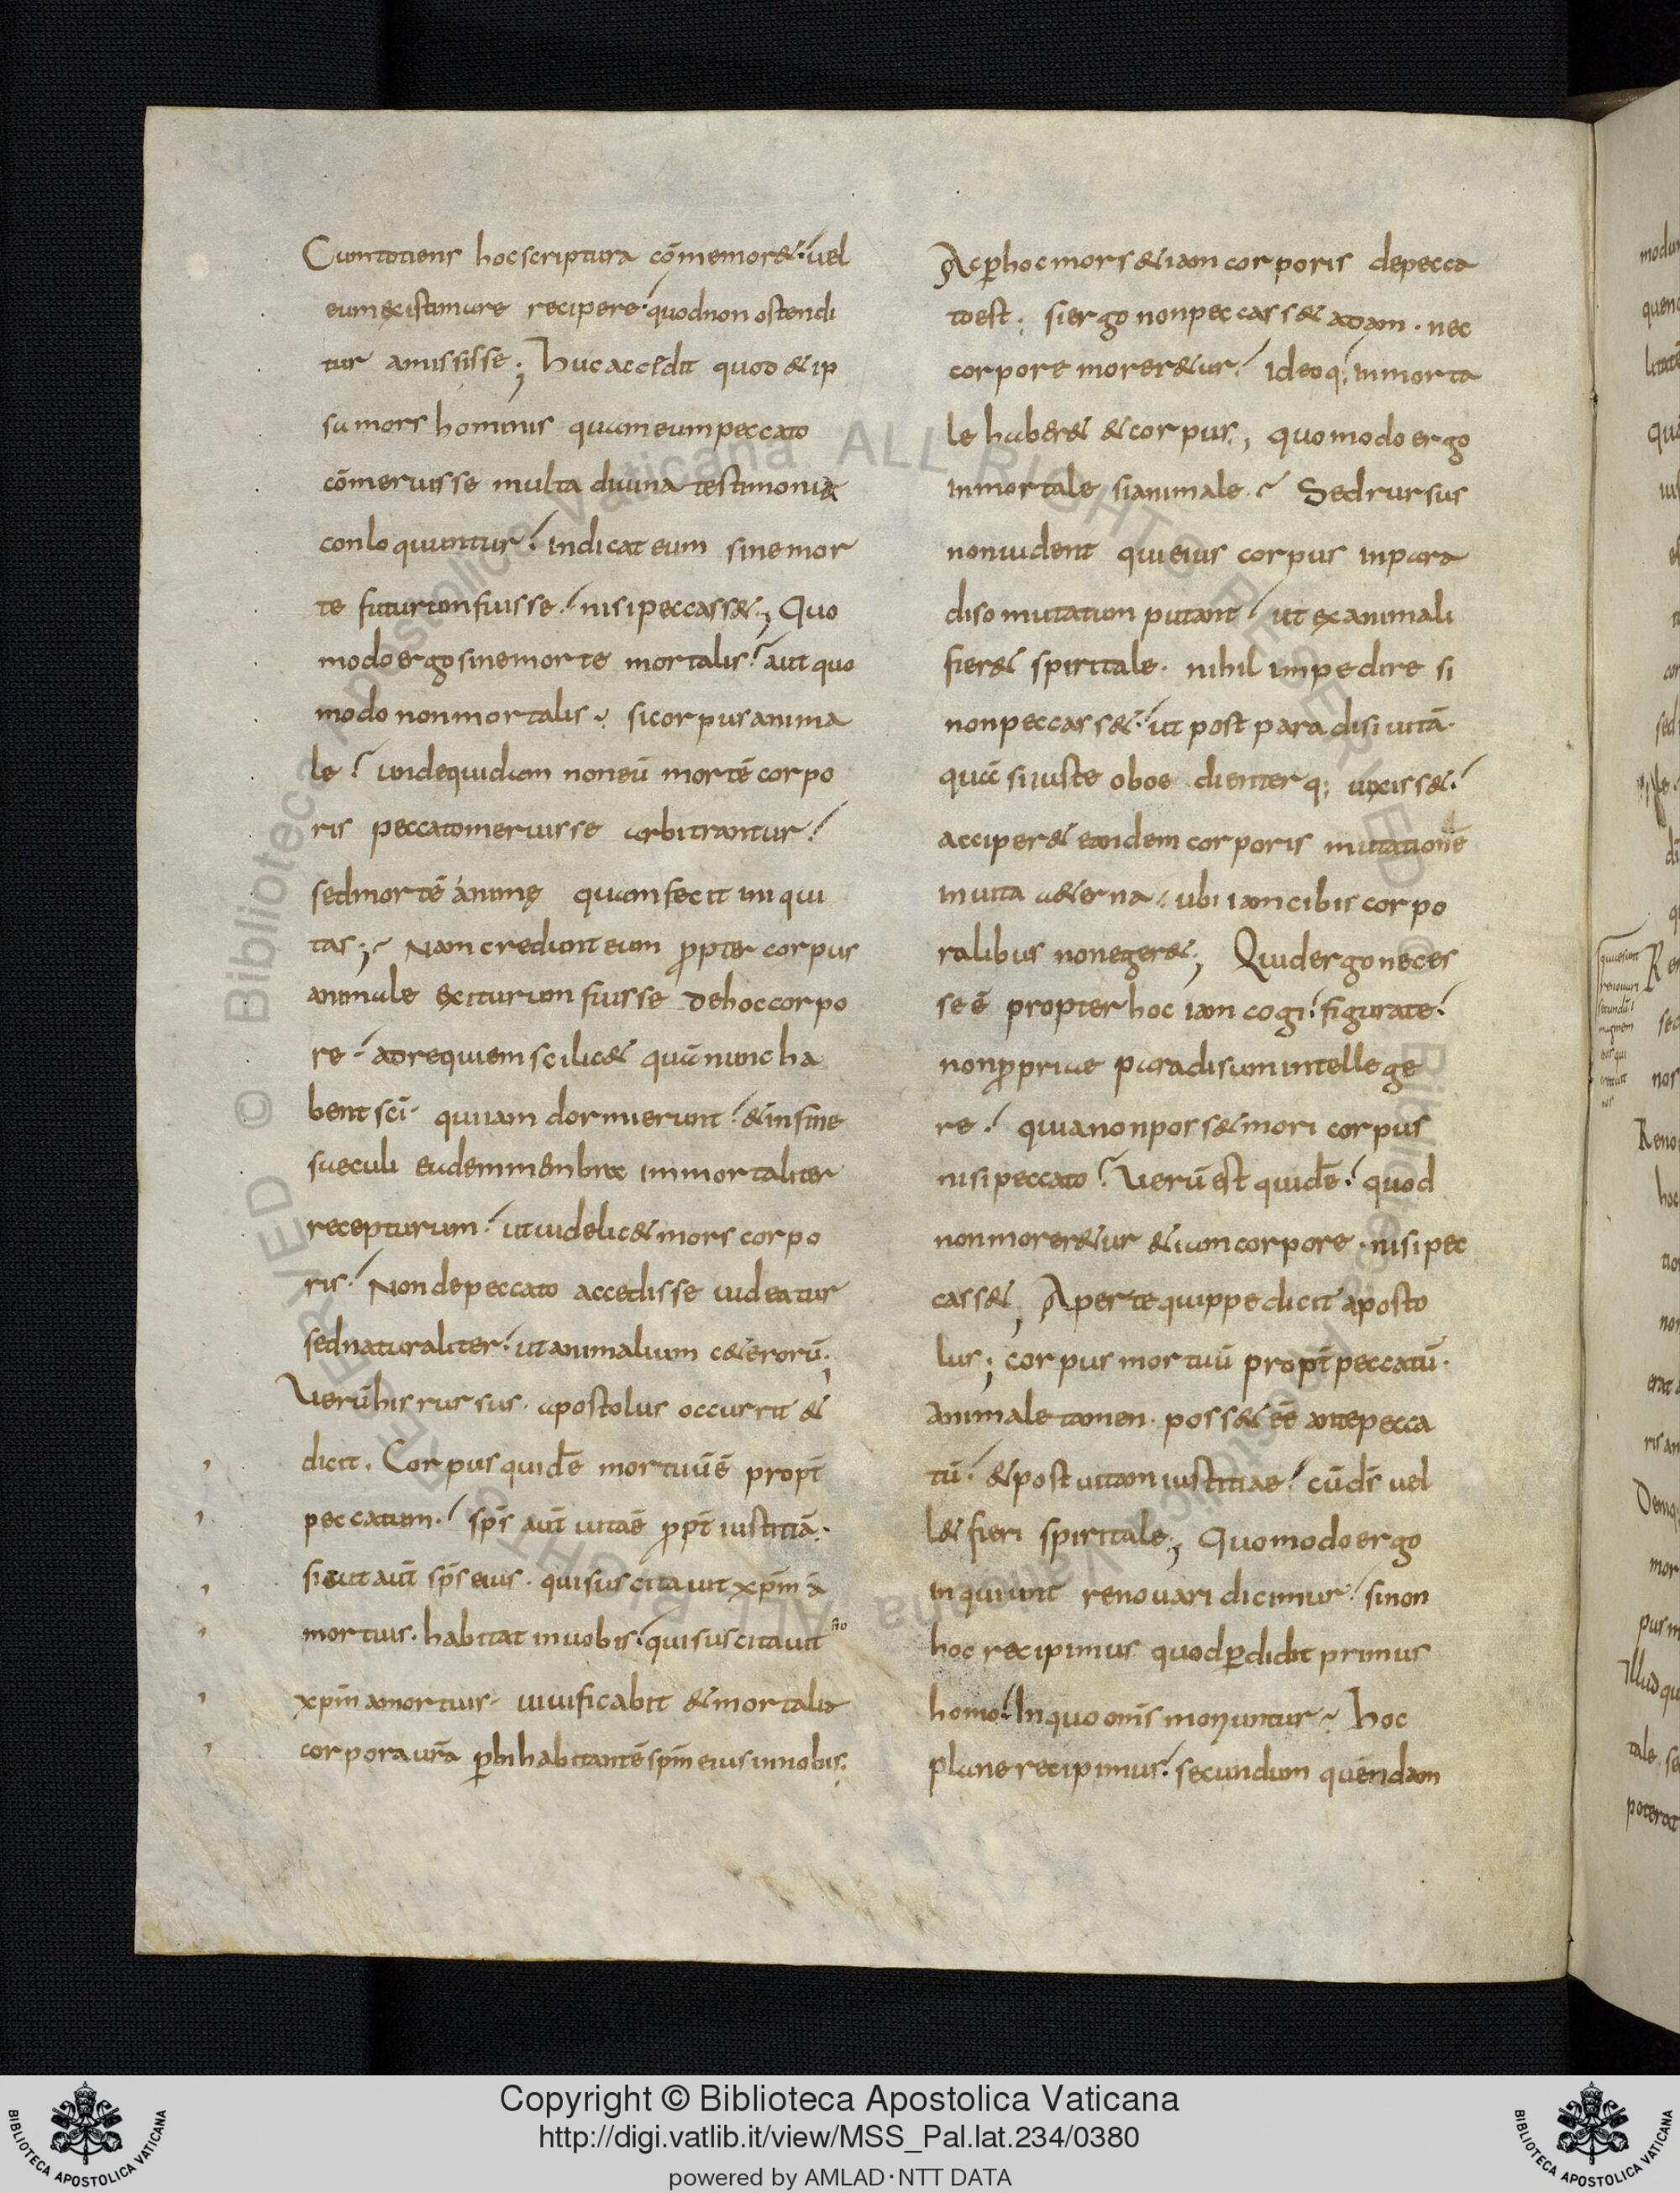 Cum totiens hoc scriptura cōmemor&. uel
eum existimare recipere. quod non ostendi
tur amisisse; Huc accedit quod & ip
sa mors hominis quam eum peccato
cōmeruisse multa diuina testimonia
conloquuntur. indicat eum sine mor
te futurum fuisse. nisi peccass&; Quo
modo ergo sine morte mortalis. aut quo
modo non mortalis. si corpus anima
le. unde quidam non eū mortē corpo
ris peccato meruisse arbitrantur.
sed mortē animę quam fecit iniqui
tas; Nam credunt eum ꝓpter corpus
animale exiturum fuisse de hoc corpo
re. ad requiem scilic& quā nunc ha
bent sc̄i. qui iam dormierunt. & in fine
saeculi eadem menbra immortaliter
recepturum. ut uidelic& mors corpo
ris. Non de peccato accedisse uideatur
sed naturaliter. ut animalium c&erorū;
Uerū his rursus. apostolus occurrit &
dicit. Corpus quidē mortuū ē propt̄
peccatum. sp̄s aut̄ uita ē ꝓpt̄ iustitiā.
si aut̄ sp̄s eius. qui suscitauit xp̄m a
mortuis. habitat in uobis. qui suscitauit
xp̄m a mortuis. uiuificabit & mortalia
corpora ur̄a ꝑ inhabitantē sp̄m eius in nobis;
Ac ꝑ hoc mors &iam corporis de pecca
to est; si ergo non peccass& adam. nec
corpore morer&ur. ideoq; inmorta
le haber& & corpus; quomodo ergo
inmortale si animale. Sed rursus
non uident qui eius corpus in para
diso mutatum putant. ut ex animali
fier& spiritale. nihil impedire si
non peccass&. ut post paradisi uitā.
quā si iuste oboedienterq; uixiss&.
acciper& eandem corporis mutationē
in uita a&erna. ubi iam cibis corpo
ralibus non eger&; Quid ergo neces
se ē propter hoc iam cogi. figurate.
non ꝓprie paradisum intellege
re. quia non poss& mori corpus
nisi peccato. Uerū est quidē. quod
non morer&ur &iam corpore. nisi pec
cass&; Aperte quippe dicit aposto
lus; corpus mortuū propt̄ peccatū.
animale tamen. poss& ēē ante pecca
tū. & post uitam iustitiae. cū d̄s uel
l& fieri spiritale; Quomodo ergo
inquiunt renouari dicimur. si non
hoc recipimus quod ꝑdidit primus
homo. In quo om̄s moriuntur. hoc
plane recipimus. secundum quendam
Copyright © Biblioteca Apostolica Vaticana
http://digi.vatlib.it/view/MSS_Pal.lat.234/0380
powered by AMLAD·NTT DATA